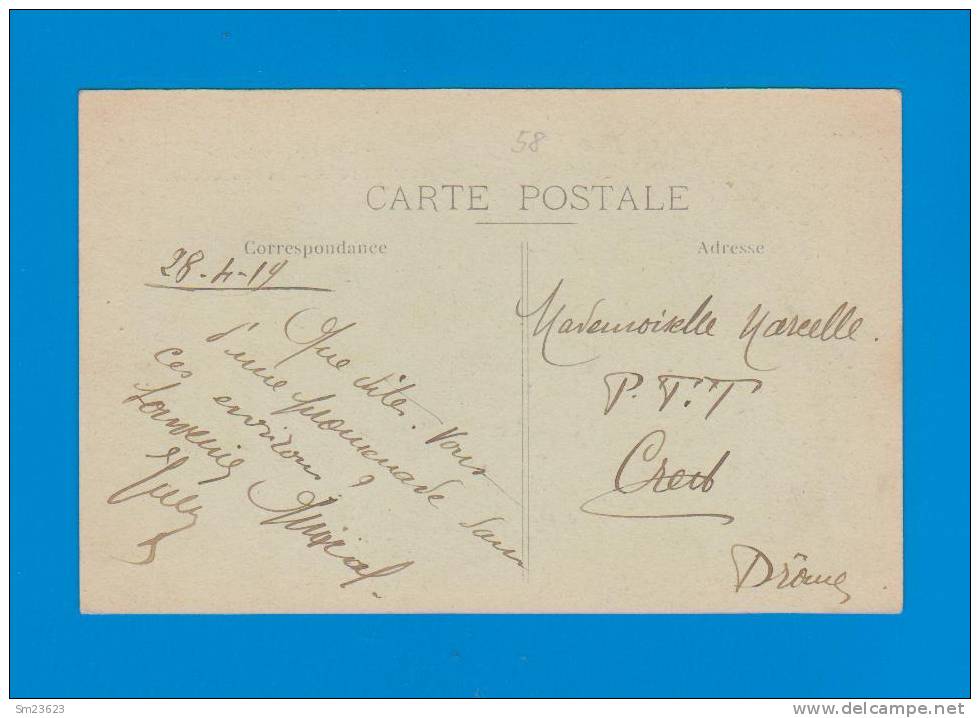 58
CARTE POSTALE
Correspondance
Adresse
28-4-19
Que dites-Vous
d'une promenade dans
ces environs ?
Amical
souvenir
Mademoiselle Marcelle.
P.T.T
Crest
Drôme
Sm23623
www.delcampe.net